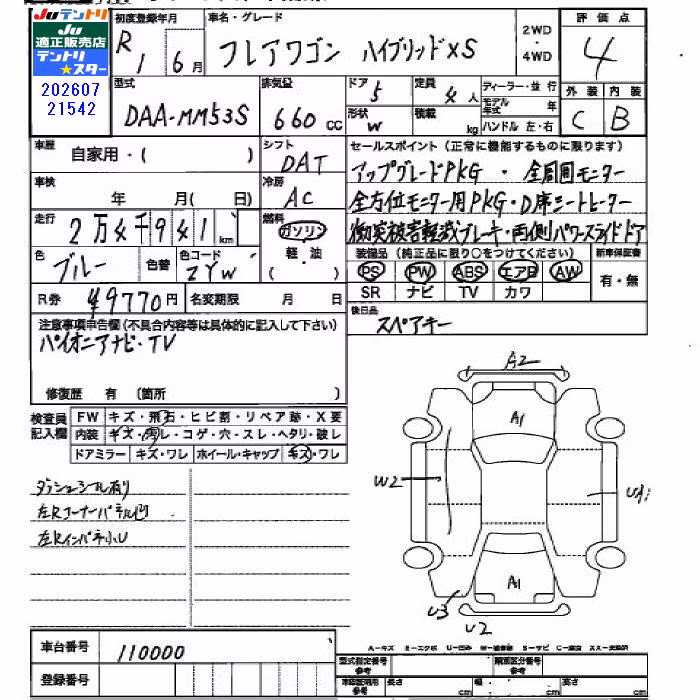 Juテントリ
Ju
適正販売店
テントリ
★スター
202607
21542
初度登録年月
R 1 6月
車名・グレード
フレアワゴン ハイブリッドXS
2WD
・
4WD
評価点
4
外装 内装
C B
型式
DAA-MM53S
排気量
660 cc
ドア
5
定員
4人
形状
W
積載
kg
ディーラー・並行
モデル年式 年
ハンドル 左・右
車歴
自家用・( )
シフト
DAT
車検
年 月( 日)
冷房
AC
走行
2万4千941km
燃料
ガソリン
・
軽・油
( )
色
ブルー
色替
色コード
ZYW
R券
¥9770円
名変期限 月 日
セールスポイント(正常に機能するものに限ります)
アップグレードPKG・全周囲モニター
全方位モニター用PKG・D席シートヒーター
衝突被害軽減ブレーキ・両側パワースライドドア
装備品(純正品に限り○をつけてください)
PS PW ABS エアB AW
SR ナビ TV カワ
新車保証書
有・無
後日品
スペアキー
注意事項申告欄(不具合内容等は具体的に記入して下さい)
パイオニアナビ・TV
修復歴 有(箇所 )
検査員
記入欄
FW キズ・飛石・ヒビ割・リペア跡・X要
内装 キズ・汚レ・コゲ・穴・スレ・ヘタリ・破レ
ドアミラー キズ・ワレ ホイール・キャップ キズ・ワレ
ダッシュシール有り
左Rコーナーパネル凹
左Rインパネ小U
A2
A1
W2
U1
A1
U3
U2
車台番号
110000
登録番号
A-キズ E-エクボ U-凹み W-補修跡 S-サビ C-腐食 XX-交換済
型式指定番号
参考
類別区分番号
参考
車庫証明用
参考
長さ cm
幅 cm
高さ cm